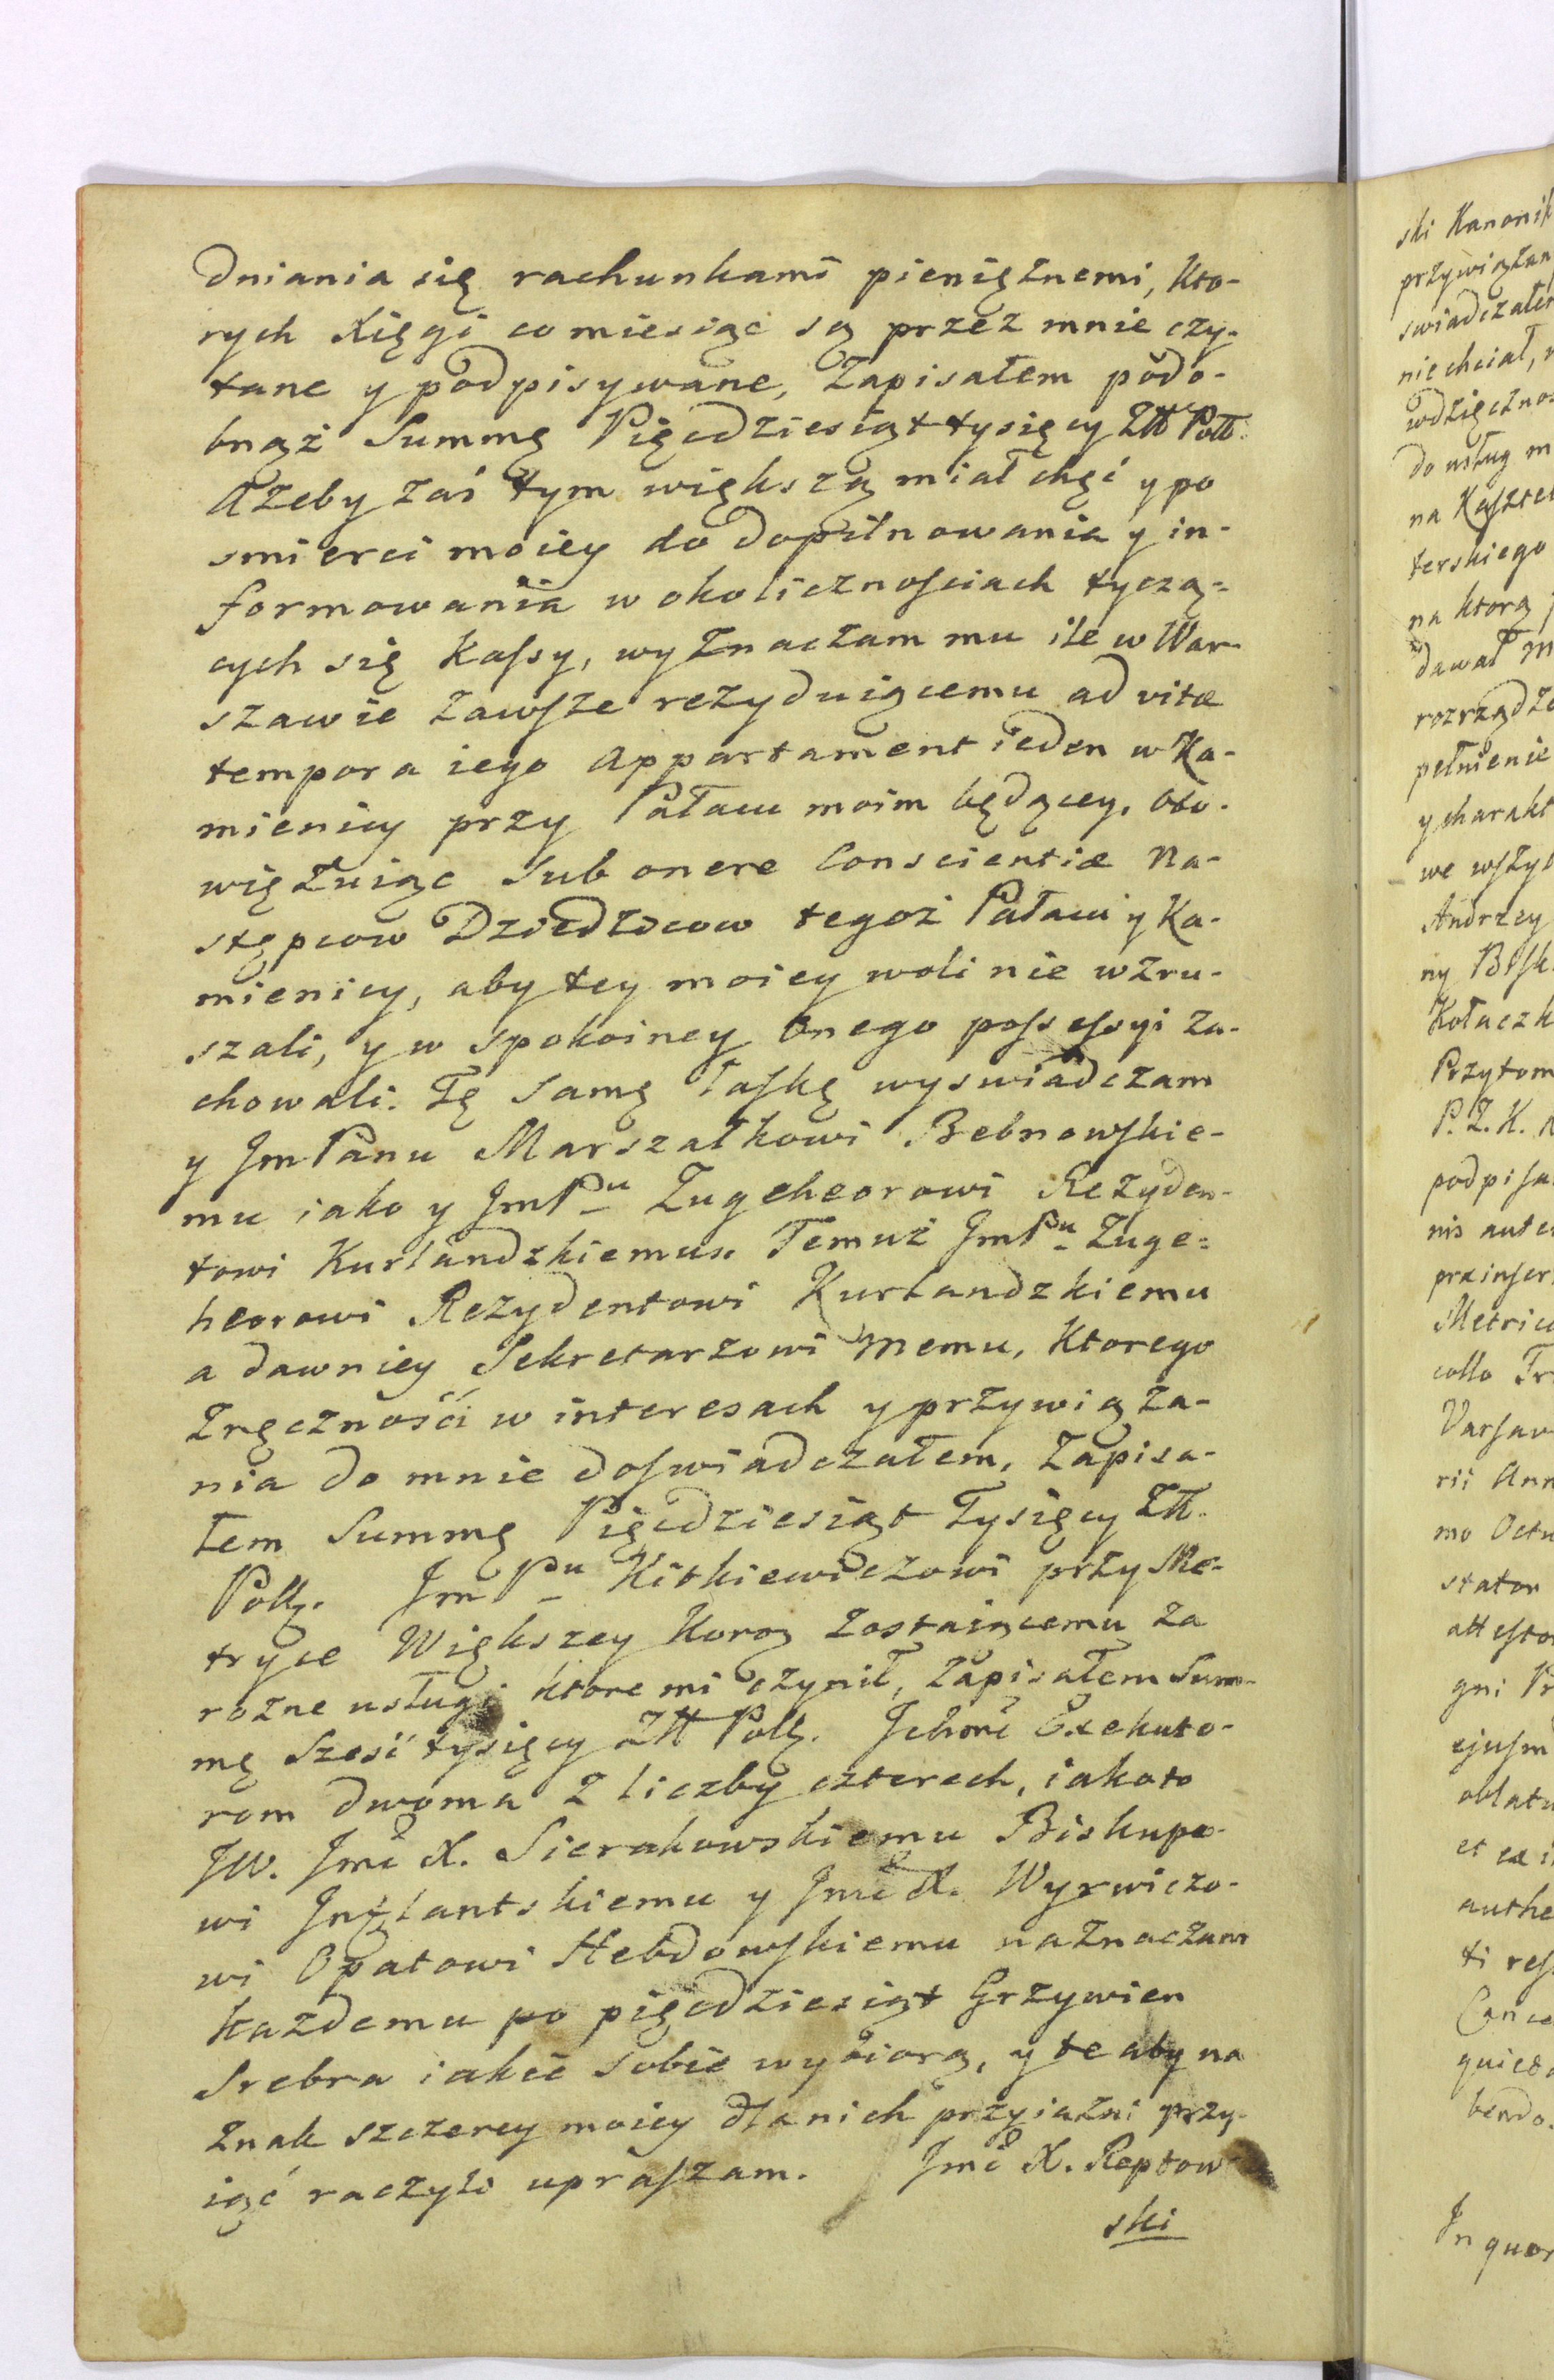 dniania się rachunkami pieniężnemi, Kto-
rych Xięgi co miesiąc są przez mnie czy-
tane y podpisywane, Zapisałem podo-
bnąż Summę Pięcdziesiąt tysięcy Złł Poll.
Ażeby zaś tym większą miał chęć y po
smierci moiey do dopilnowania y in-
formowania w okolicznosciach tyczą-
cych się Kassy, wyznaczam mu ile w War-
szawie zawsze rezyduiącemu ad vitæ
tempora iego Appartament ieden w Ka-
mienicy przy Pałacu moim będącey. Obo-
więzuiąc Sub onere Conscientiæ Na-
stępcow Dziedzicow tegoż Pałacu y Ka-
mienicy, aby tey moiey woli nie wzru-
szali, y w spokoiney Onego possessyi za-
chowali. Tę Samę łaskę wyswiadczam
y Jm Panu Marszałkowi Bebnowskie-
mu iako y JmPu Zugeheorowi Rezyden-
towi Kurlandzkiemu. Temuż JmPu Zuge=
heorowi Rezydentowi Kurlandzkiemu
a dawniey Sekretarzowi memu, Ktorego
Zręczności w interesach y przywiąza-
nia do mnie doswiadczałem, Zapisa-
łem Summę Pięcdziesiąt Tysięcy Złł.
Poll. Jm Pu Kitkiewiczowi przy Me-
tryce Większey Koroy Zostaiącemu za
rożne usługi ktore mi czynił, Zapisałem Sum-
mę Sześć tysięcy Złł Poll. Jchmć Exekuto-
rom dwoma z liczby czterech, iakoto
JW. Jmć X. Sierakowskiemu Biskupo-
wi Inflantskiemu y Jmć X. Wyrwiczo-
wi Opatowi Hebdowskiemu naznaczam
każdemu po pięcdziesiąt Grzywien
Srebra iakie sobie wybiorą, y te aby na
znak szczerey moiey dla nich przyiaźni przy-
iąć raczyli upraszam. Jmć X. Reptow
ski
ski Kanonik
przywiązan
swiadczałem
nie chciał,
wdzięcznos
do usług m
na Kasztel
terskiego
na ktorą
dawał m
rozrządze
pełnienie
y charakt
we wszys
Andrzey
ny Bisk
Kołaczk
Przytom
P. Z. K.
podpisa
nis aute
præinser
Metric
collo Tr
Varsav
rii Ann
mo Octu
stator
attesto
gni P
ejusm
oblatu
et ex i
authe
ti res
Cance
quieta
bendo.
In quor